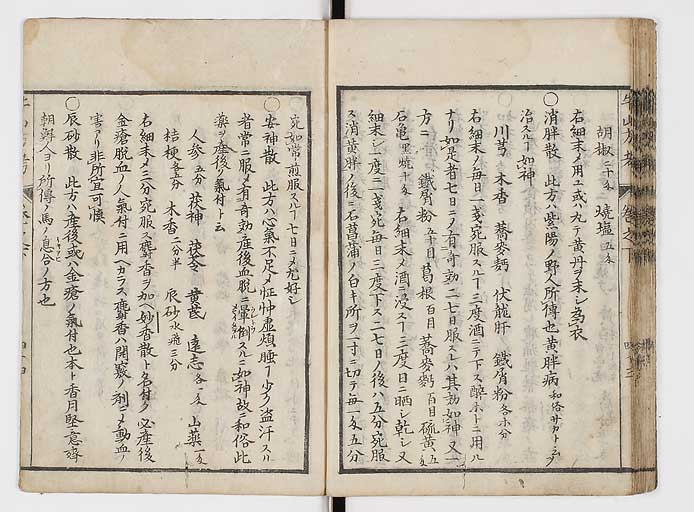 胡椒二十匁 焼塩五匁
右細末メ用ユ或ハ丸テ黄丹ヲ末シ為衣
〇消胖散 此方ハ紫陽ノ野人所傳也黄胖病
治スルヿ如神
川芎 木香 蕎麥麪 伏龍肝 鐵屑粉各等分
右細末ノ毎日一匁宛服スルヿ三度酒ニテ下ス醉ホトニ用ル
ナリ如是者七日ニノ有奇効二七日服スレハ其効如神又一
方ニ 鐵屑粉五十目葛根百目蕎麥麪百目硫黄五匁
石亀黒焼十匁 右細末メ酒ニ浸スヿ三度日ニ晒シ乾シ又
細末シ一度ニ一匁宛毎日三度下ス二七日ノ後ハ五分宛服
ス消黄胖ノ後ニ石菖蒲ノ白キ所ヲ一寸ニ切テ毎一匁五分
〇宛如常煎服スルヿ七日ニメ尤好シ
〇安神散 此方ハ心氣不足メ怔忡虚煩睡ヿ少ク盗汗スル
者常ニ服メ有奇効産後血脱ニ暈倒スルニ如神故ニ和俗此
藥ヲ産後ノ氣付ト云
人参五分茯神 茯苓 黄芪 遠志各一匁 山藥一匁
桔梗五分 木香二分半 辰砂水飛三分
右細末メ三分宛服ス麝香ヲ加ヘ妙香散ト名付ク必産後
金瘡脱血ノノ氣付ニ用ヘカラス麝香ハ開竅ノ剤ニメ動血ノ
害アリ非所宜可慎
〇辰砂散 此方ハ産後或ハ金瘡ノ氣付也本ト香月堅意齋
朝鮮人ヨリ所傳ノ馬ノ息合ノ方也